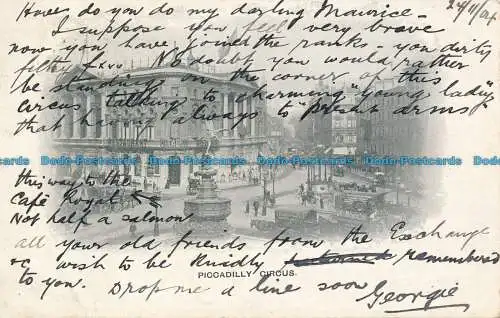 24/11/04
Have do you do my darling Maurice -
I suppose you feel very brave
now you have joined the ranks - you dirty
No doubt you would rather
be standing on the corner of this
circus talking to a charming "young lady"
that having always to "present arms"
Dodo-Postcards Dodo-Postcards Dodo-Postcards Dodo-Postcards Dodo-Postcards
this way to the
Café Royal
Not half a salmon
all your old friends from the Exchange
wish to be kindly remembered
to you.
PICCADILLY CIRCUS.
Drop me a line soon Georgie